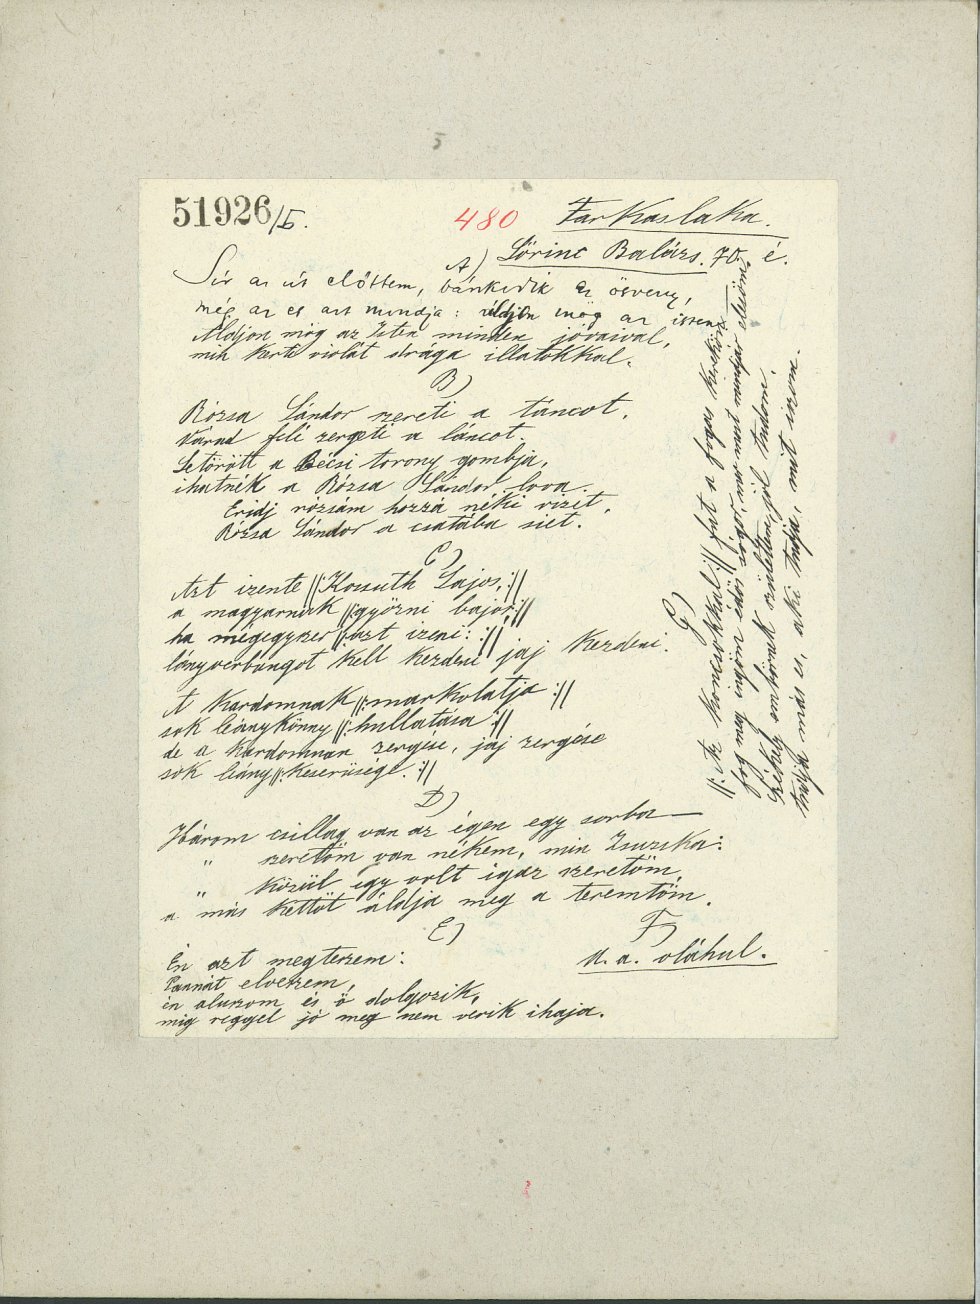 5
51926/5.
480
Farkaslaka.
Lőrinc Balázs. 70. é.
A)
Sír az út előttem, bánkódik az ösveny,
még az es azt mondja: áldjon mög az isten
Áldjon mög az Isten minden jóvaival,
min kerti violát drága illatokkal.
B)
Rózsa Sándor szereti a táncot,
Várad felé zergeti a láncot.
Letörött a Bécsi torony gombja,
ihatnék a Rózsa Sándor lova.
Eridj rózsám hozzá néki vizit,
Rózsa Sándor a csatába siet.
C)
Azt izente //:Kossuth Lajos,://
a magyarnak //:győzni bajos;://
ha mégegyszer //:azt izeni: ://
lányverbungot kell kezdeni jaj kezdeni.
A kardomnak //:markolatja ://
sok leánykönny //:hullatása ://
de a kardomnak zergése, jaj zergése
sok leány //:keserüsége. ://
D)
Három csillag van az égen egy sorba
" szeretőm van nékem, min Zsuzska:
" közül egy volt igaz szeretőm,
a más kettőt áldja meg a teremtőm.
E)
Én azt megteszem:
Pannát elveszem,
én aluszom és ő dolgozik,
míg reggel jó meg nem verik ihaja.
F)
U. a. oláhul.
G)
//: Az koncsokkal :// fát a fogas kereskön
fog meg ingöm édös
székely embörnek születtem, jól tudom,
tudja más es, aki tudja, mit iszom.